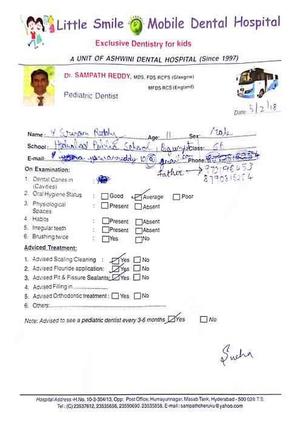 Little Smile Mobile Dental Hospital
Exclusive Dentistry for kids
A UNIT OF ASHWINI DENTAL HOSPITAL (Since 1997)
Dr. SAMPATH REDDY, MDS, FDS RCPS (Glasgow)
MFDS RCS (England)
Pediatric Dentist
Date: 5/2/18
Name: Reddy Age: 11 Sex: Male
School: Public School Class:
E-mail: Phone:
Father
On Examination:
1. Dental Caries in (Cavities)
2. Oral Hygiene Status : Good Average Poor
3. Physiological Spaces : Present Absent
4. Habits : Present Absent
5. Irregular teeth : Present Absent
6. Brushing twice : Yes No
Adviced Treatment:
1. Advised Scaling Cleaning : Yes No
2. Advised Flouride application: Yes No
3. Advised Pit & Fissure Sealants: Yes No
4. Advised Filling in
5. Advised Orthodontic treatment : Yes No
6. Others:
Note: Advised to see a pediatric dentist every 3-6 months Yes No
Hospital Address -H.No. 10-3-304/13, Opp. Post Office, Humayunnagar, Masab Tank, Hyderabad - 500 028 T.S.